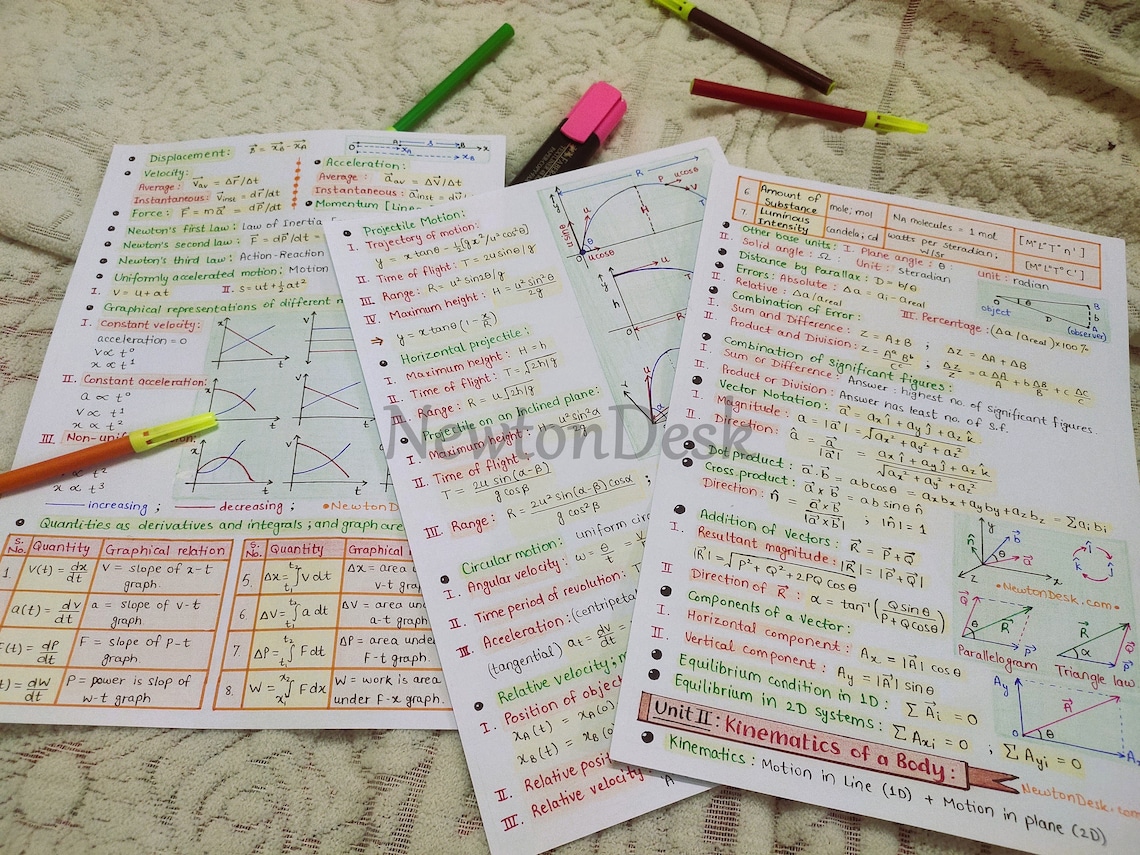 Displacement: s⃗ = x⃗B - x⃗A
Velocity:
Average: v⃗av = Δr⃗/Δt
Instantaneous: v⃗inst = dr⃗/dt
Force: F⃗ = ma⃗ = dp⃗/dt
Newton's first law: Law of Inertia
Newton's second law: F⃗ = dp⃗/dt =
Newton's third law: Action-Reaction
Uniformly accelerated motion: Motion
I. v = u + at II. s = ut + ½at²
Graphical representations of different
I. Constant velocity:
acceleration = 0
v ∝ t⁰
x ∝ t¹
II. Constant acceleration:
a ∝ t⁰
v ∝ t¹
x ∝ t²
III. Non-
x ∝ t³
increasing ; decreasing ; •NewtonD
Quantities as derivatives and integrals; and graph are
S. No. Quantity Graphical relation
1. v(t) = dx/dt v = slope of x-t graph.
a(t) = dv/dt a = slope of v-t graph.
F(t) = dP/dt F = slope of P-t graph.
= dW/dt P = power is slop of w-t graph
S. No. Quantity Graphical
5. Δx = ∫t₁^t₂ v dt Δx = area v-t graph
6. ΔV = ∫t₁^t₂ a dt ΔV = area un a-t graph.
7. ΔP = ∫t₁^t₂ F dt ΔP = area under F-t graph.
8. W = ∫x₁^x₂ F dx W = work is area under F-x graph.
O A s B x
xA
xB
Acceleration:
Average: a⃗av = Δv⃗/Δt
Instantaneous: a⃗inst = dv⃗
Momentum [Line
Projectile Motion:
I. Trajectory of motion:
y = x tanθ - ½(gx²/u²cos²θ)
II. Time of flight: T = 2u sinθ/g
III. Range: R = u²sin2θ/g
IV. Maximum height: H = u²sin²θ/2g
⇒ y = x tanθ(1 - x/R)
Horizontal projectile:
I. Maximum height: H = h
II. Time of flight: T = √2h/g
III. Range: R = u√2h/g
Projectile on an Inclined plane:
I. Maximum height: H = u²sin²α/2g
II. Time of flight:
T = 2u sin(α-β)/g cosβ
III. Range: R = 2u² sin(α-β)cosα/g cos²β
Circular motion: uniform circ
I. Angular velocity: ω = θ/t = v
II. Time period of revolution: T
III. Acceleration: (centripeta
(tangential) at = dv/dt =
Relative velocity;
I. Position of object
xA(t) = xA(0
xB(t) = xB(0
II. Relative posit
III. Relative velocity:
6. Amount of Substance mole; mol NA molecules = 1 mol. [M⁰L⁰T⁰n¹]
7. Luminous Intensity candela; cd watts per steradian; W/Sr [M⁰L⁰T⁰C¹]
Other base units: I. Plane angle: θ: unit: radian
II. Solid angle: Ω: Unit: steradian
Distance by Parallax: D = b/θ
Errors: Absolute: Δa = ai - areal
II. Relative: Δa/areal III. Percentage: (Δa/areal)×100%
object θ D B b A (observer)
Combination of Error:
I. Sum and Difference: Z = A±B ; ΔZ = ΔA + ΔB
II. Product and Division: Z = AᵃBᵇ/Cᶜ ; ΔZ/Z = a ΔA/A + b ΔB/B + c ΔC/C
Combination of significant figures:
I. Sum or Difference: Answer: highest no. of significant figures.
II. Product or Division: Answer has least no. of s.f.
Vector Notation: a⃗ = ax î + ay ĵ + az k̂
I. Magnitude: a = |a⃗| = √ax² + ay² + az²
II. Direction: â = a⃗/|a⃗| = ax î + ay ĵ + az k̂/√ax² + ay² + az²
Dot product: a⃗.b⃗ = ab cosθ = axbx + ayby + azbz = Σaibi
Cross product: a⃗×b⃗ = ab sinθ n̂
Direction: n̂ = a⃗×b⃗/|a⃗×b⃗| ; |n̂| = 1
Addition of Vectors: R⃗ = P⃗ + Q⃗
I. Resultant magnitude: |R⃗| = |P⃗+Q⃗|
|R⃗| = √P² + Q² + 2PQ cosθ
II Direction of R⃗: α = tan⁻¹(Q sinθ/P+Q cosθ)
Components of a Vector:
I. Horizontal component: Ax = |A⃗| cosθ
II. Vertical component: Ay = |A⃗| sinθ
Equilibrium condition in 1D: ΣA⃗i = 0
Equilibrium in 2D systems: ΣAxi = 0 ; ΣAyi = 0
•NewtonDesk.com•
Parallelogram
Triangle law
Unit II: Kinematics of a Body:
NewtonDesk.com
Kinematics: Motion in Line (1D) + Motion in plane (2D)
NewtonDesk